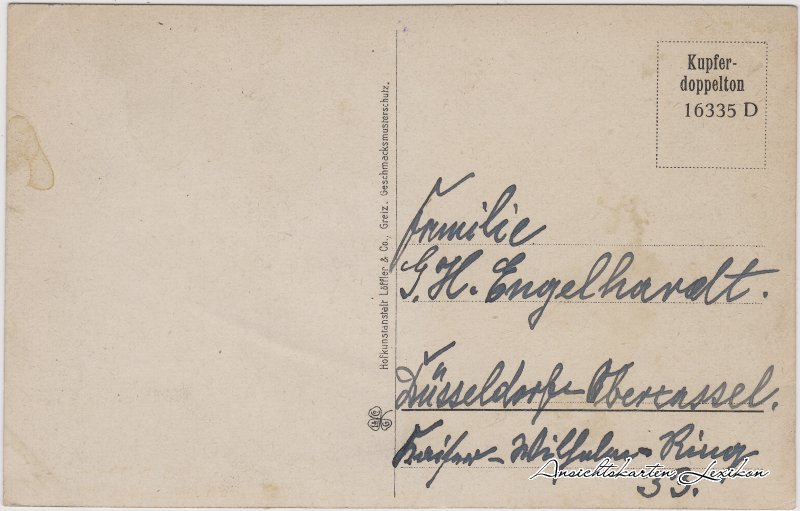 Kupfer-
doppelton
16335 D
Hofkunstanstalt Löffler & Co., Greiz. Geschmacksmusterschutz.
Familie
G. H. Engelhardt.
Düsseldorf-Obercassel.
Kaiser-Wilhelm-Ring
Ansichtskarten Lexikon